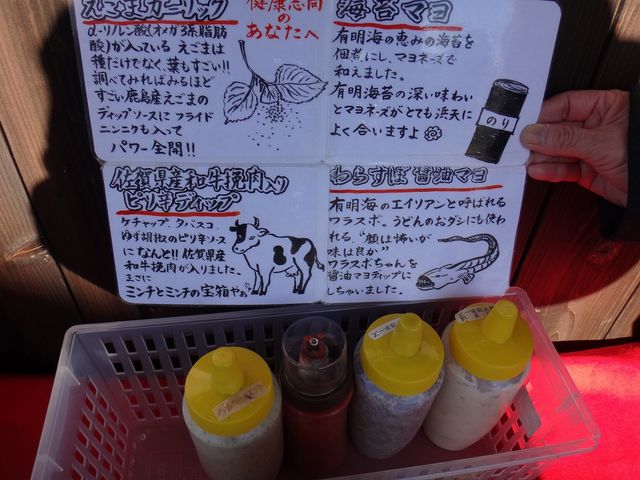 えごまガーリック
健康志向
の
あなたへ
α-リルン酸(オメガ3系脂肪
酸)が入っている えごまは
種だけでなく、葉もすごい!!
調べてみればみるほど
すごい鹿島産えごまの
ディップソースに フライド
ニンニクも入って
パワー全開!!
海苔マヨ
有明海の恵みの海苔を
佃煮にし、マヨネーズで
和えました。
有明海苔の深い味わい
とマヨネーズがとても浜天に
よく合いますよ
のり
佐賀県産和牛挽肉入り
ピリ辛ディップ
ケチャップ、タバスコ、
ゆず胡椒のピリ辛ソース
になんと!! 佐賀県産
和牛挽肉が入りました。
まさに
ミンチとミンチの宝箱やぁ
わらすぼ醤油マヨ
有明海のエイリアンと呼ばれる
ワラスボ。うどんのおダシにも使わ
れる、"顔は怖いが
味は良か"
ワラスボちゃんを
醤油マヨディップに
しちゃいました。